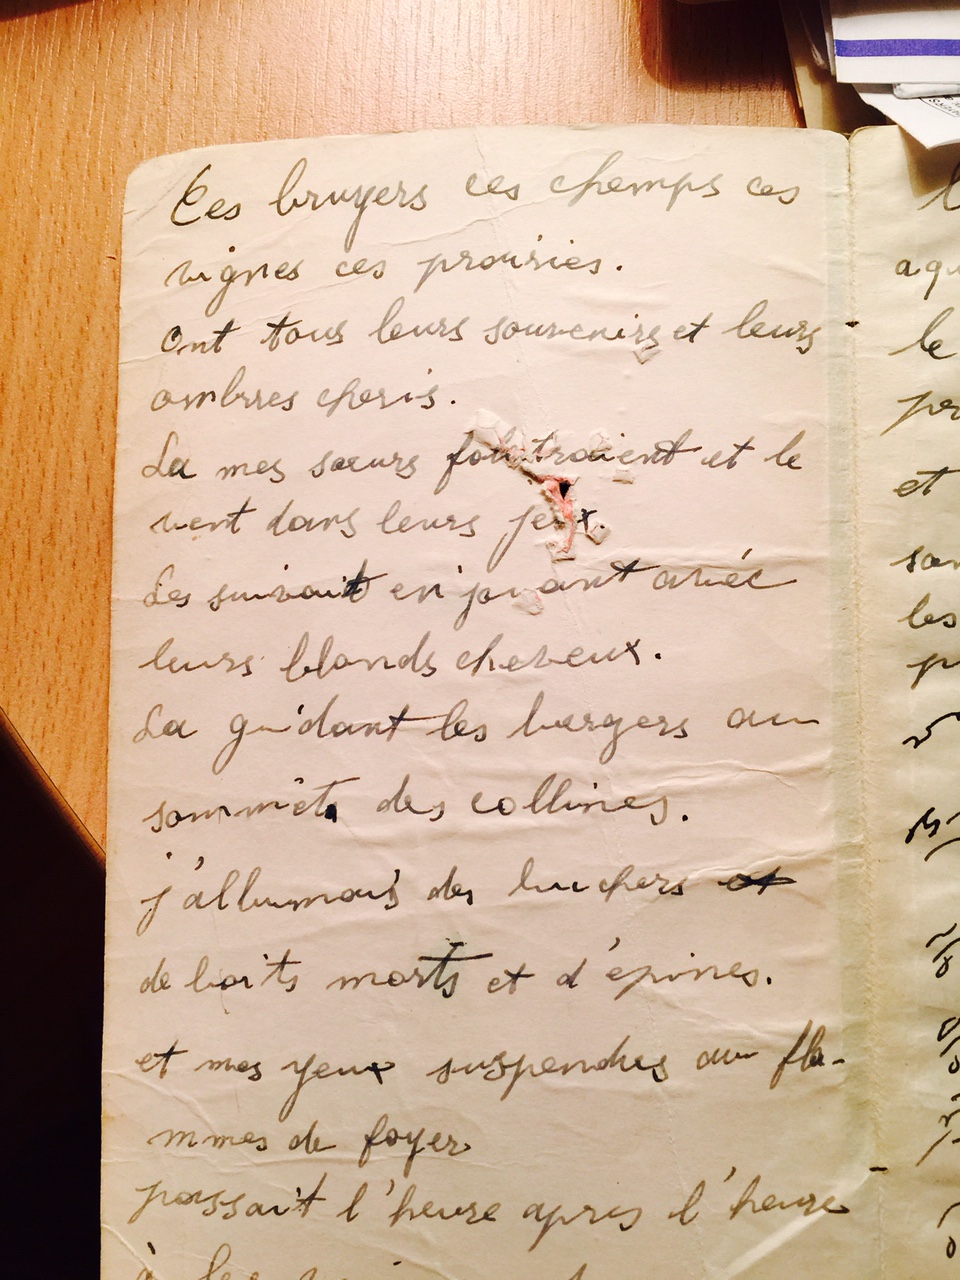 Ces bruyers ces chemps ces
vignes ces prairies.
Ont tous leurs souvenirs et leurs
ombres cheris.
La mes sœurs folatraient et le
vent dans leurs jeux.
Les suivait en jouant avéc
leurs blonds cheveux.
La guidant les bergers au
sommèts des collines.
j'allumais des buchers
de boits morts et d'épines.
et mes yeux suspendus au fla-
mmes de foyer
passait l'heure apres l'heure
à les
aqu
le
et
les